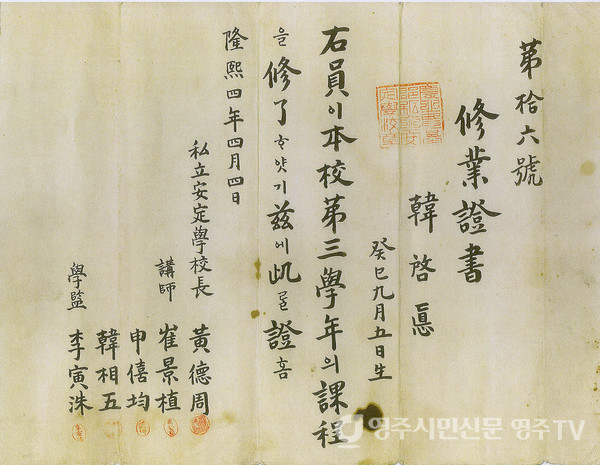 第拾六號
修業證書
韓啓悳
癸巳九月五日生
右員이本校第三學年의課程
을修了ᄒᆞ얏기玆에此ᄅᆞᆯ證홈
隆熙四年四月四日
私立安定學校長 黃德周
講師 崔景植
申僖均
韓相五
學監 李寅洙
영주시민신문 영주TV